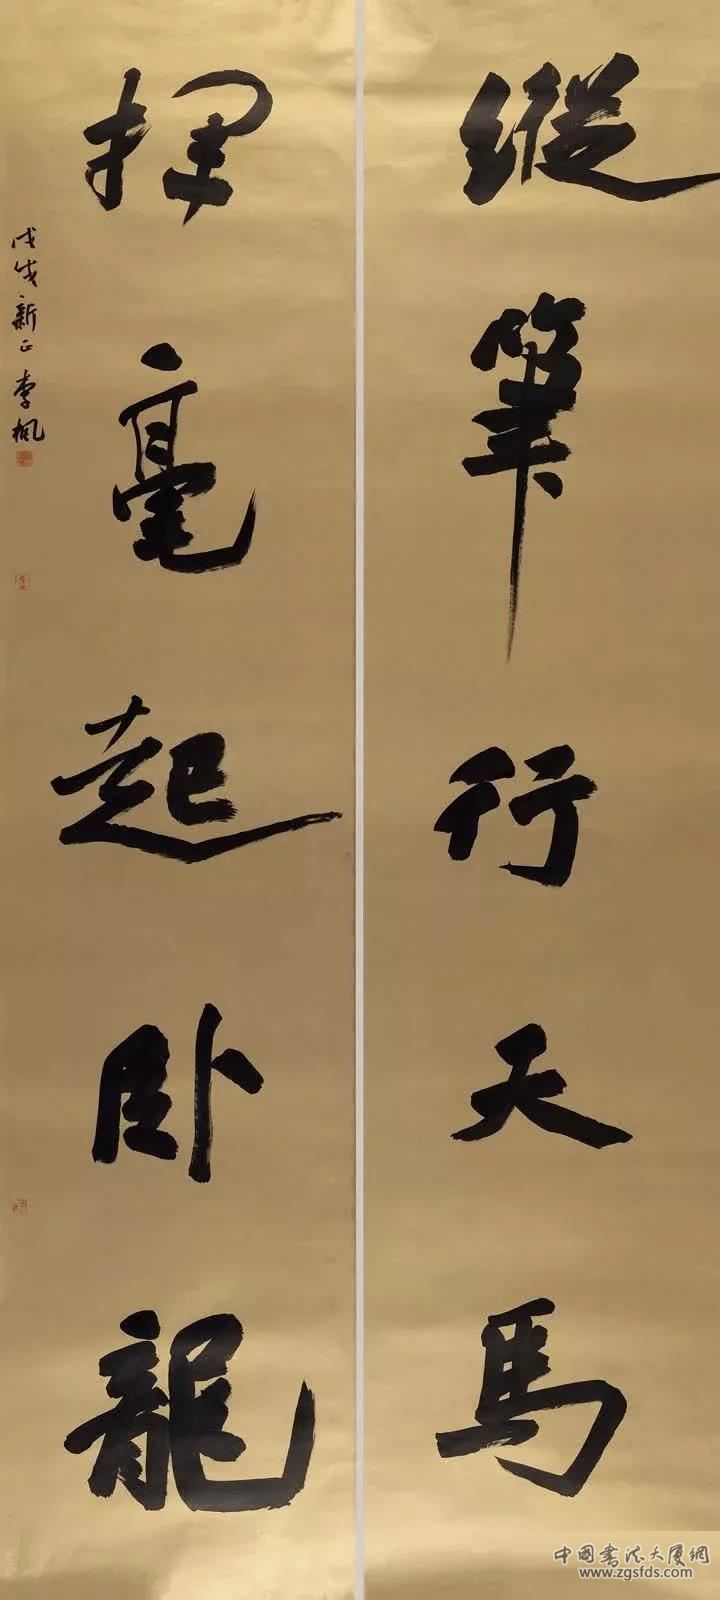 縱筆行天馬
揮毫起卧龍
戊戌新正李楓
中国书法大厦網
www.zgsfds.com